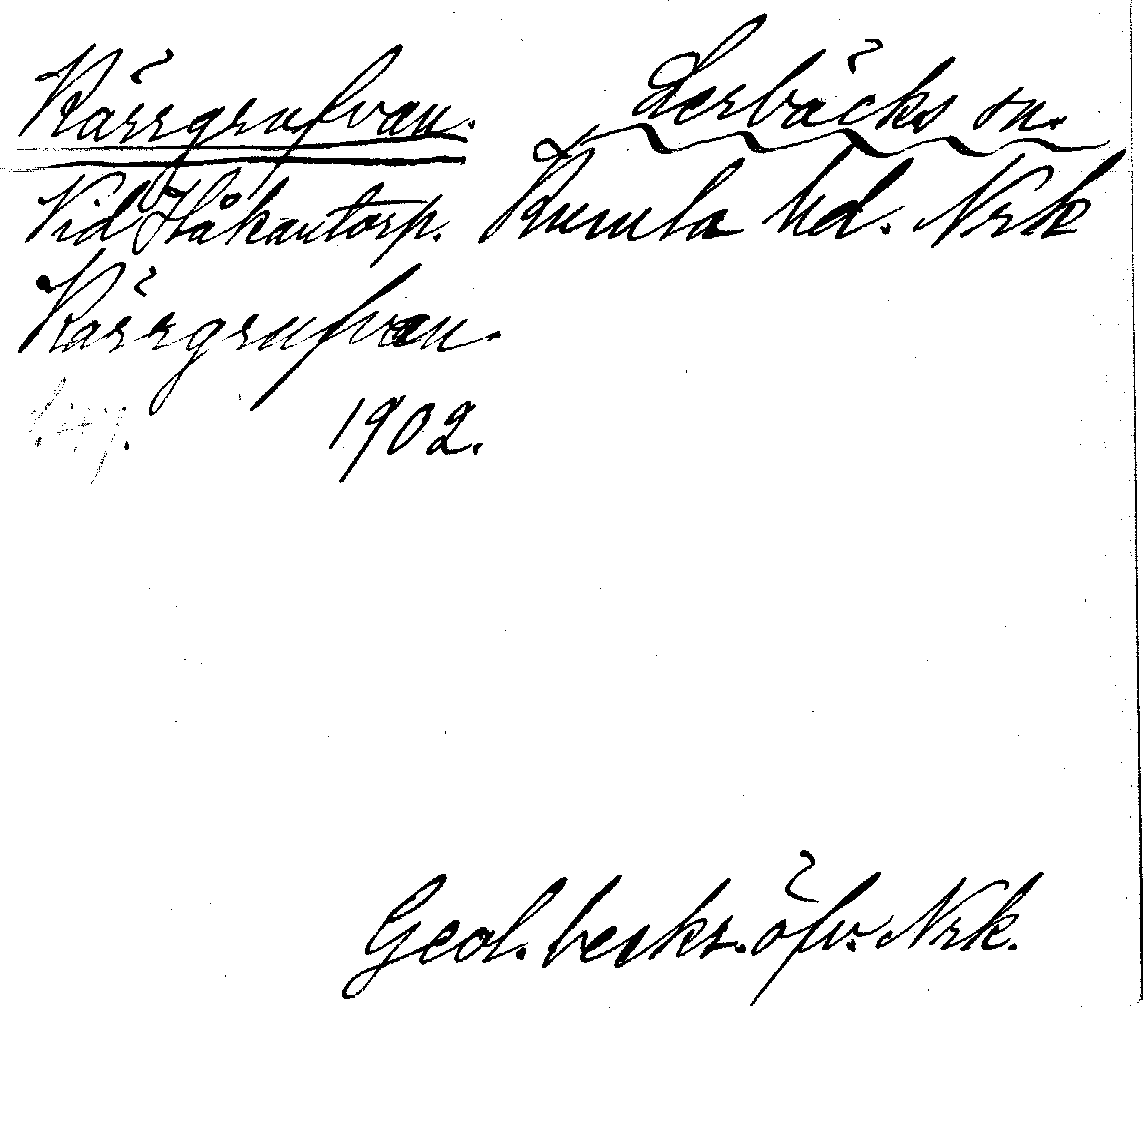 Kärrgrufvan. Lerbäcks sn.
Vid Håkantorp. Kumla hd. Nrk
Kärrgrufvan.
1902.
Geol. beskr. öfv. Nrk.